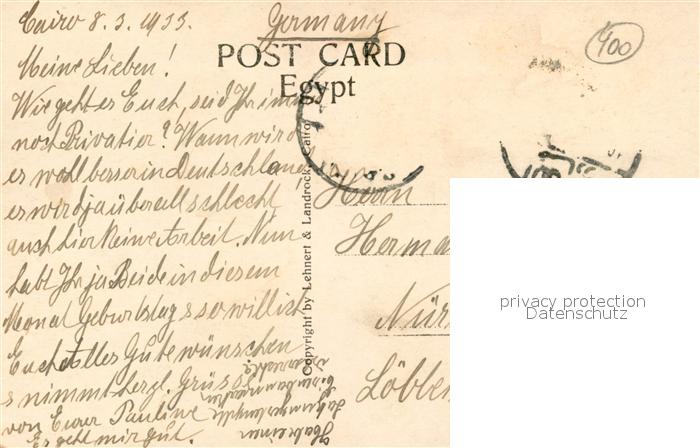 Cairo 8.3.1933.
Germany
400
POST CARD
Egypt
Meine Lieben!
Wie geht es Euch, seid Ihr immer
noch Privatier? Wann wird
es wohl besser in Deutschland
es wird ja überall schlecht
auch hier Keine Arbeit. Nun
habt Ihr ja Beide in diesem
Monat Geburtstag so will ich
Euch Alles Gute wünschen
nimmt herzl. Grüsse
von Eurer Pauline
Es geht mir gut.
Habe einen
Copyright by Lehnert & Landrock, Cairo
Herrn
Herma
Nür
Löbbe
privacy protection
Datenschutz